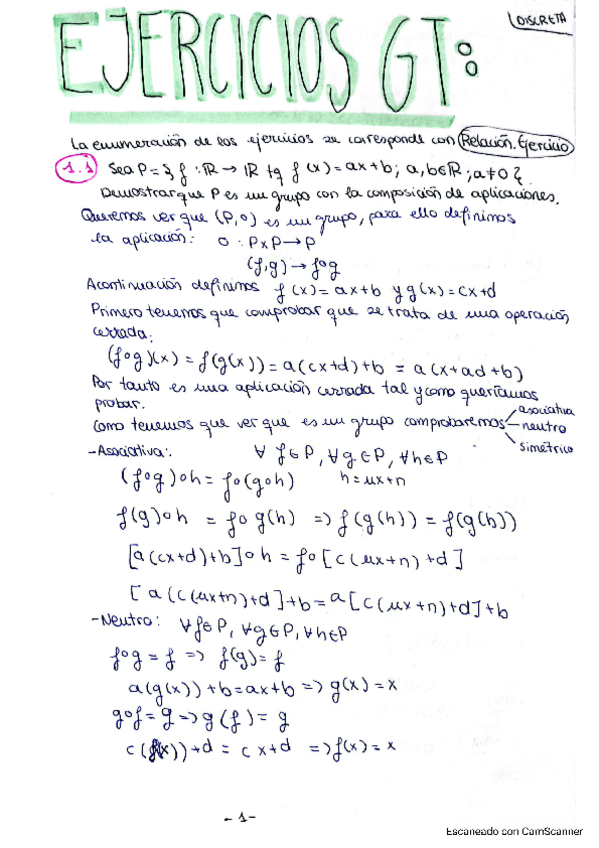 DISCRETA
EJERCICIOS GT:
La enumeración de los ejercicios se corresponde con Relación.Ejercicio
1.1 Sea P = { f : ℝ → ℝ tq f(x) = ax + b ; a, b ∈ ℝ ; a ≠ 0 }.
Demostrar que P es un grupo con la composición de aplicaciones.
Queremos ver que (P, ∘) es un grupo, para ello definimos
la aplicación: ∘ : P x P → P
(f, g) → f∘g
A continuación definimos f(x) = ax + b y g(x) = cx + d
Primero tenemos que comprobar que se trata de una operación
cerrada:
(f∘g)(x) = f(g(x)) = a(cx+d)+b = a(x+ad+b)
Por tanto es una aplicación cerrada tal y como queríamos
probar.
Como tenemos que ver que es un grupo comprobaremos
asociativa
neutro
simétrico
- Asociativa: ∀ f ∈ P, ∀ g ∈ P, ∀ h ∈ P
(f∘g)∘h = f∘(g∘h) h = ux + n
f(g)∘h = f∘g(h) => f(g(h)) = f(g(h))
[a(cx+d)+b]∘h = f∘[c(ux+n)+d]
[a(c(ux+n)+d]+b = a[c(ux+n)+d]+b
- Neutro: ∀ f ∈ P, ∀ g ∈ P, ∀ h ∈ P
f∘g = f => f(g) = f
a(g(x))+b = ax+b => g(x) = x
g∘f = g => g(f) = g
c(f(x))+d = cx+d => f(x) = x
-1-
Escaneado con CamScanner